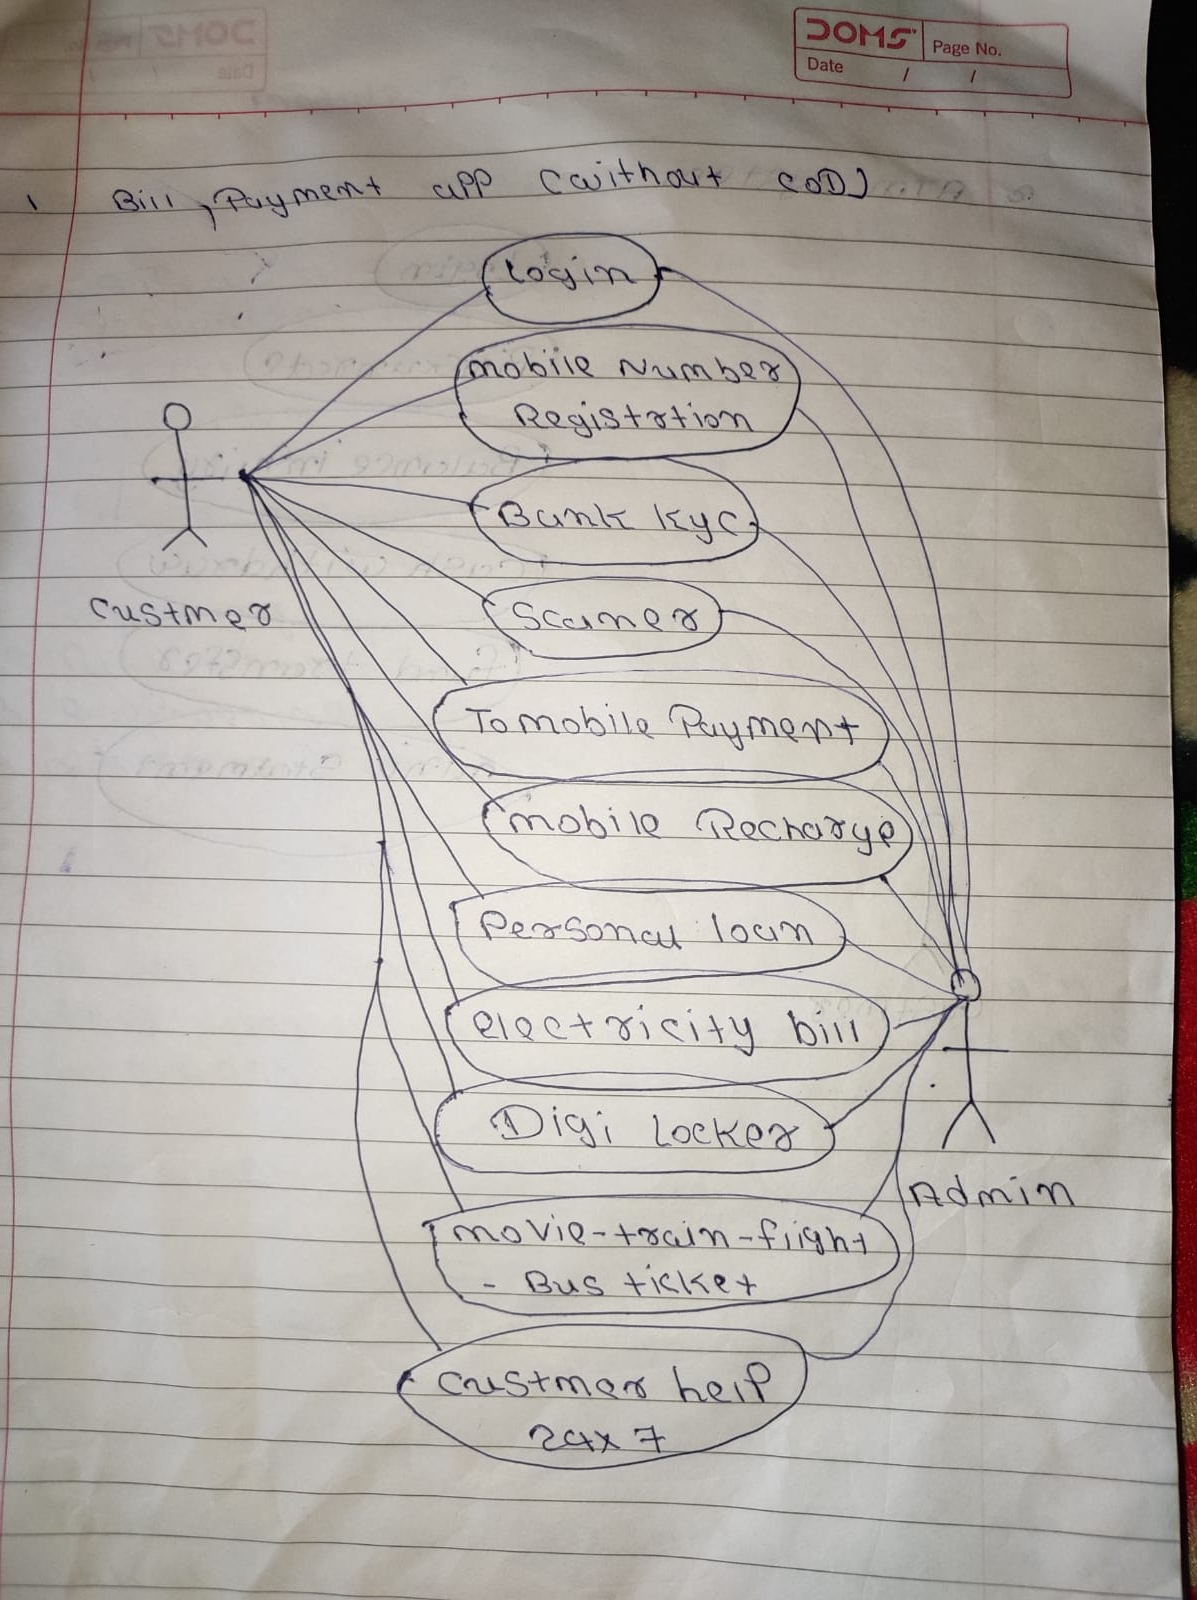 DOMS Page No.
Date / /
1 Bill, Payment app (without COD)
Login
mobile Number
Registrtion
Bank kyc
Scaner
custmer
To mobile Payment
mobile Recharge
Personal loan
electricity bill
Digi Locker
Admin
movie-train-flight
- Bus ticket
custmer help
24x7